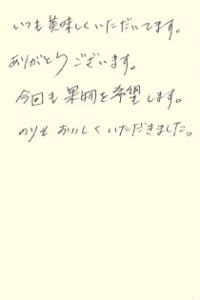 いつも美味しくいただいてます。
ありがとうございます。
今回も果物を希望します。
のりも おいしくいただきました。